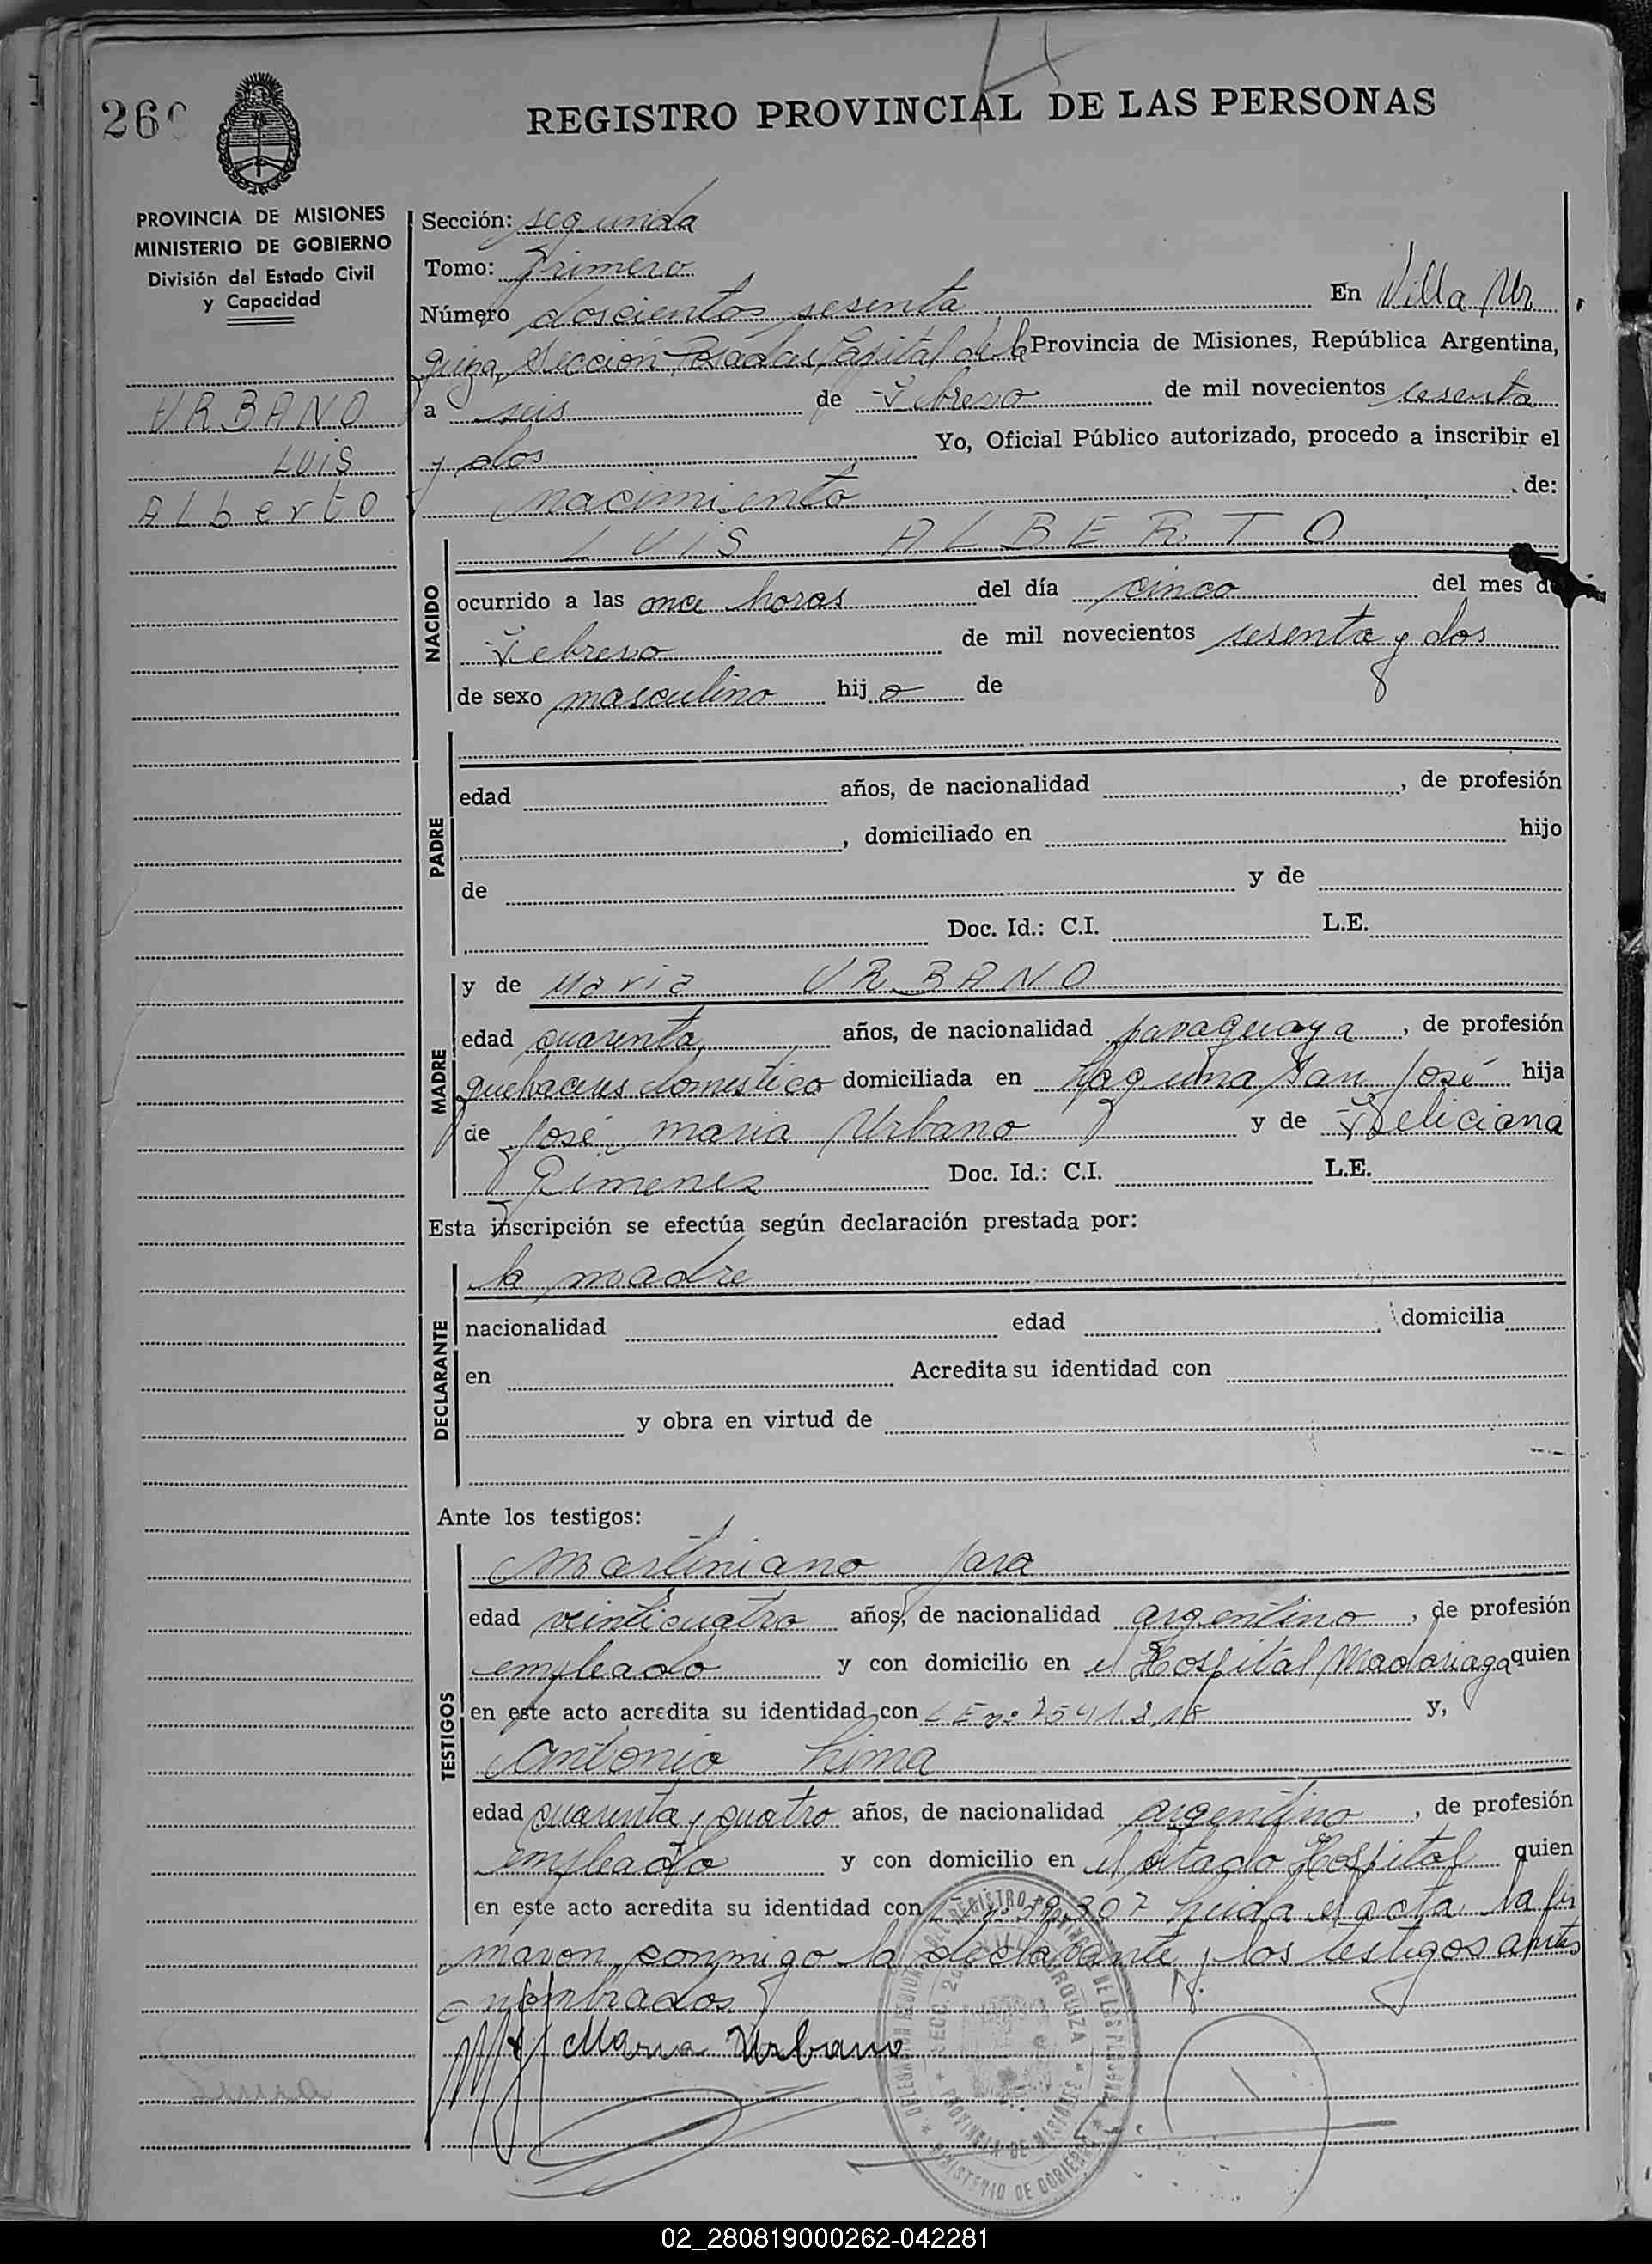 260
REGISTRO PROVINCIAL DE LAS PERSONAS
PROVINCIA DE MISIONES
MINISTERIO DE GOBIERNO
División del Estado Civil
y Capacidad
URBANO
LUIS
Alberto
Sección: segunda
Tomo: Primero
Número doscientos sesenta En Villa Ur
quiza, Sección Posadas Capital de la Provincia de Misiones, República Argentina,
a seis de Febrero de mil novecientos sesenta
y dos Yo, Oficial Público autorizado, procedo a inscribir el
nacimiento de:
NACIDO
LUIS ALBERTO
ocurrido a las once horas del día cinco del mes de
Febrero de mil novecientos sesenta y dos
de sexo masculino hijo de
PADRE
edad años, de nacionalidad , de profesión
, domiciliado en hijo
de y de
Doc. Id.: C.I. L.E.
MADRE
y de Maria URBANO
edad cuarenta años, de nacionalidad paraguaya, de profesión
quehaceres domestico domiciliada en Laguna San José hija
de José maria Urbano y de Feliciana
Gimenez Doc. Id.: C.I. L.E.
Esta inscripción se efectúa según declaración prestada por:
DECLARANTE
la madre
nacionalidad edad domicilia
en Acredita su identidad con
y obra en virtud de
Ante los testigos:
TESTIGOS
Martiniano Jara
edad veinticuatro años, de nacionalidad argentino, de profesión
empleado y con domicilio en el Hospital Madariaga quien
en este acto acredita su identidad con L E nº y,
Antonio Lima
edad cuarenta y cuatro años, de nacionalidad argentino, de profesión
empleado y con domicilio en el citado Hospital quien
en este acto acredita su identidad con Leida el acta la fir
maron conmigo la declarante y los testigos antes
nombrados
Maria Urbano
REGISTRO PROVINCIAL DE LAS PERSONAS
SECC. 2a VILLA URQUIZA
PROVINCIA DE MISIONES
MINISTERIO DE GOBIERNO
02_280819000262-042281